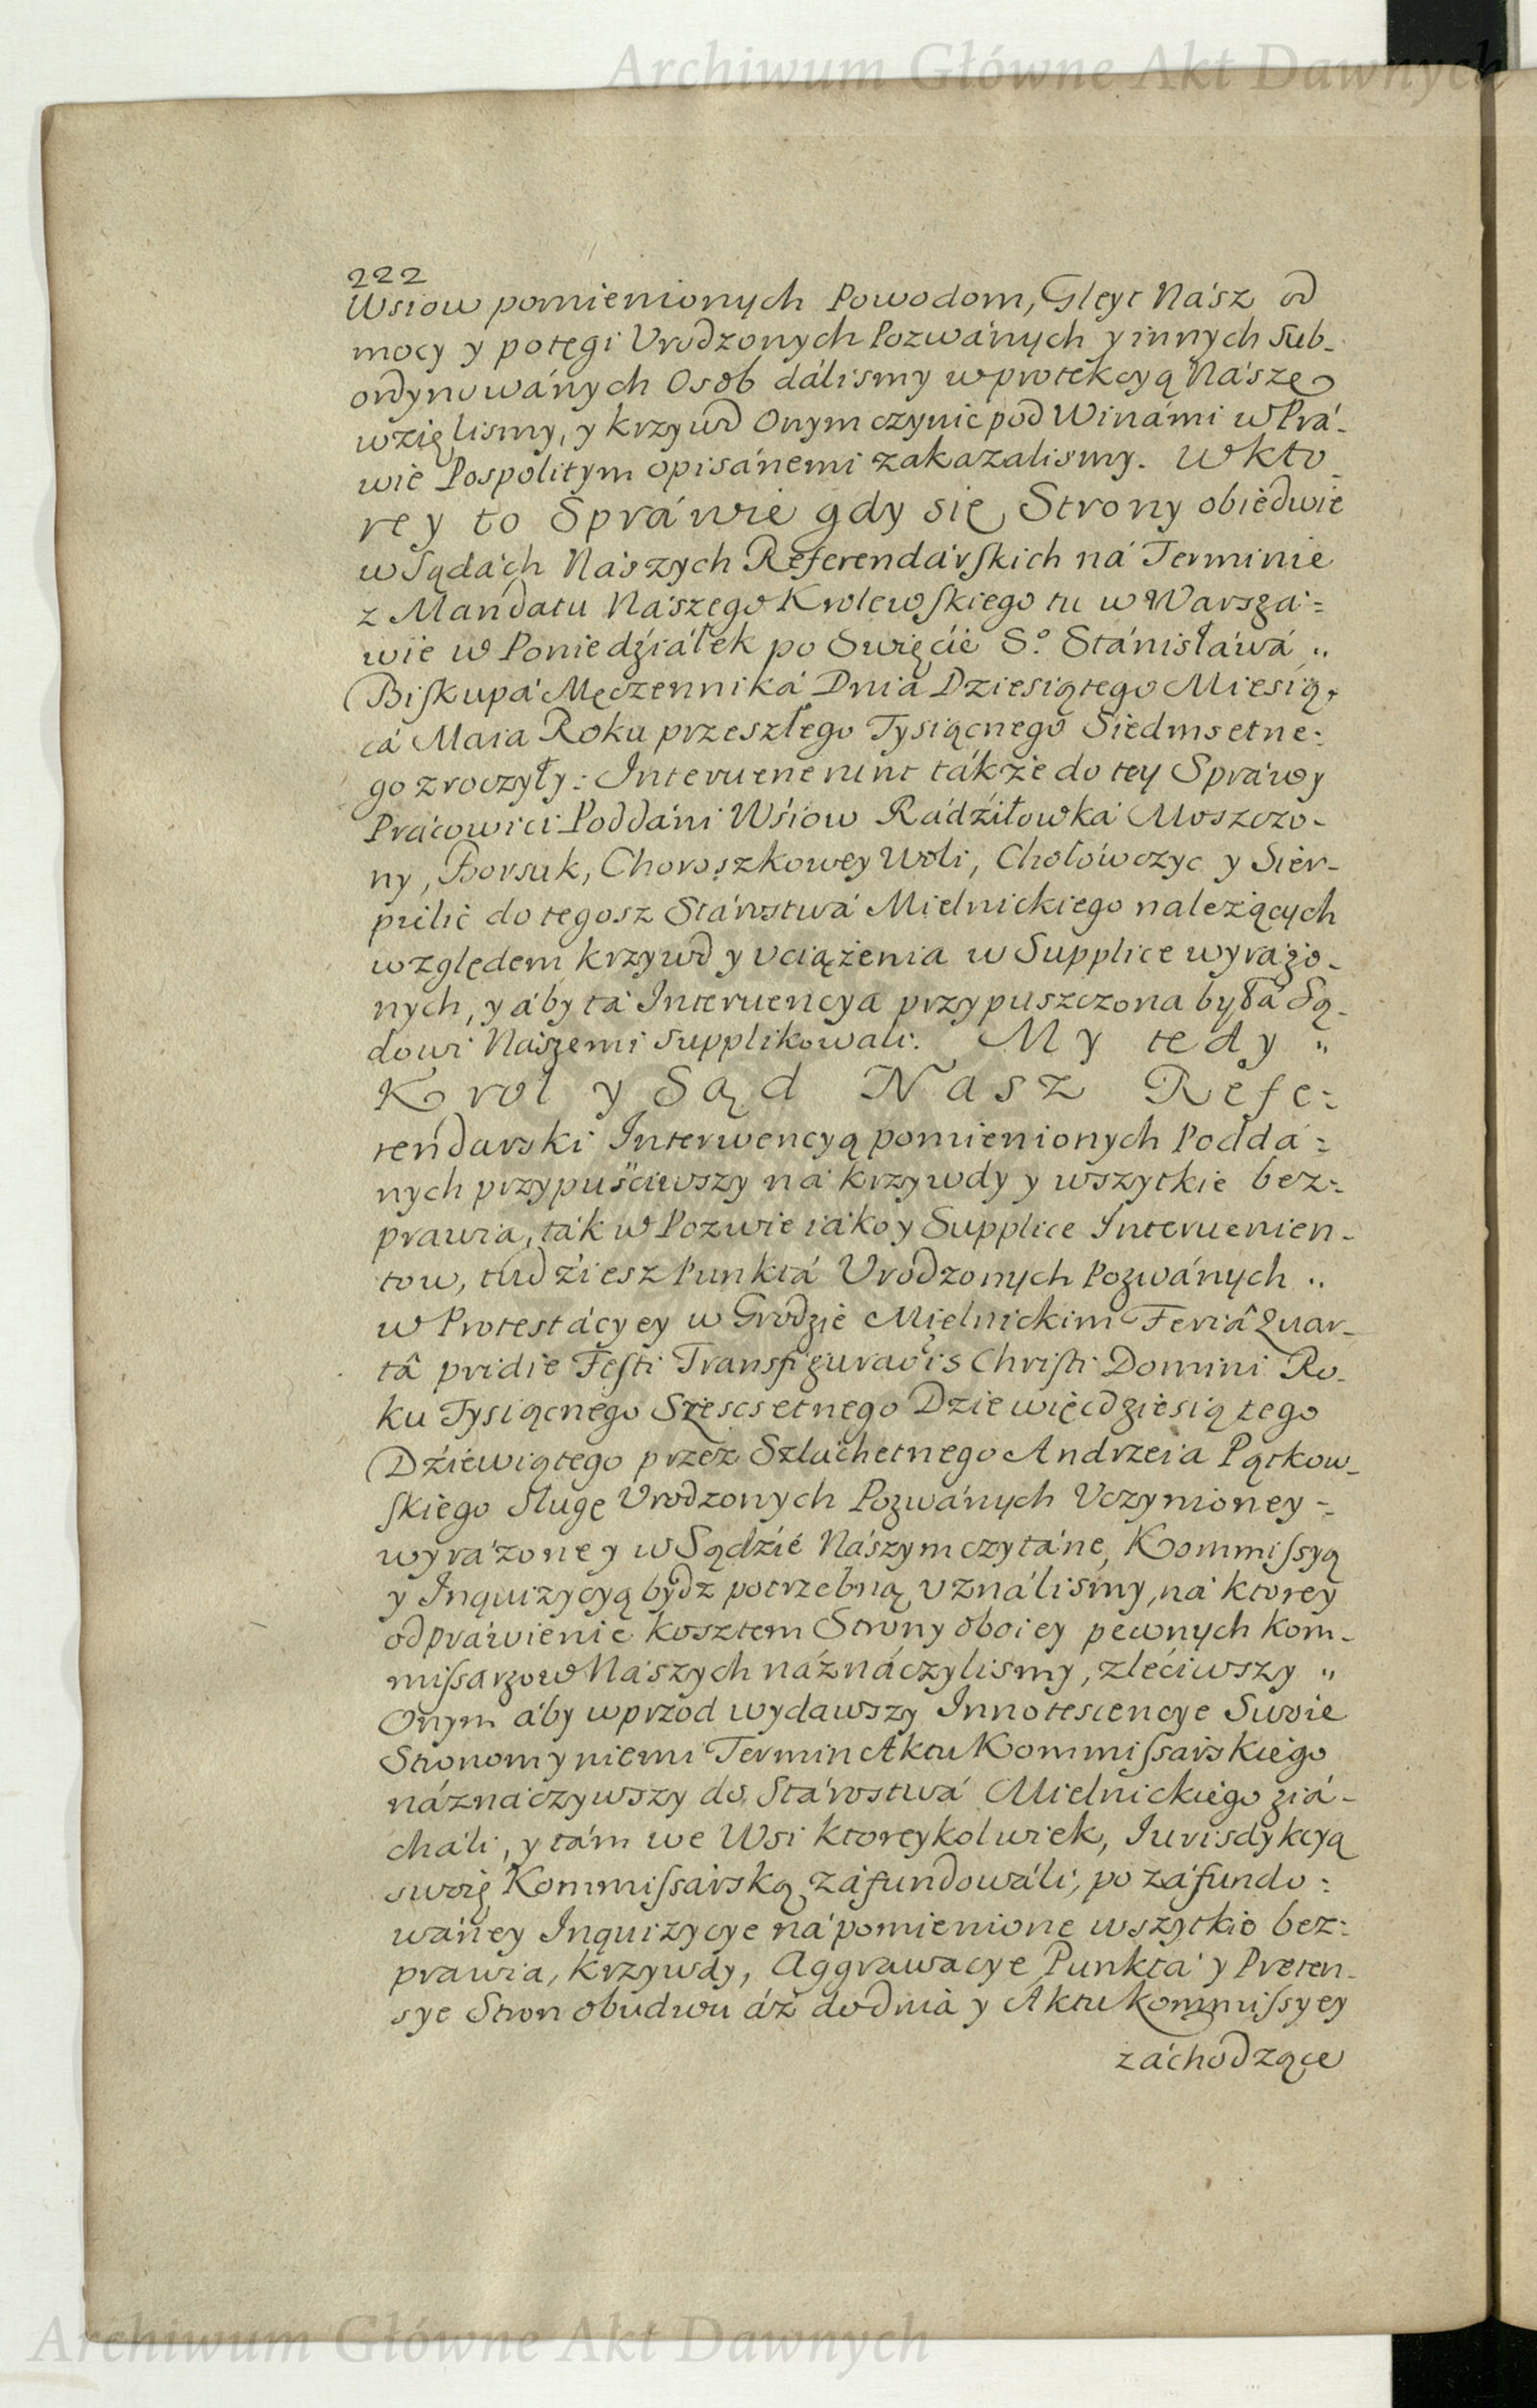 Archiwum Główne Akt Dawnych
222
Wsiow pomienionych Powodom, Gleyt Nász od
mocy y potęgi Vrodzonych Pozwánych y innych Sub-
ordynowánych Osob dálismy w protekcyą Nászę
wzięlismy, y krzywd Onym czynic pod Winámi w Prá-
wie Pospolitym opisánemi zakazalismy. W kto-
rey to Spráwie gdy się Strony obiedwie
w Sądách Nászych Referendárskich ná Terminie
z Mandatu Nászego Krolewskiego tu w Warszá=
wie w Poniedźiáłek po Swięćie S.º Stánisłáwá „
Biskupá Męczenniká Dnia Dziesiątego Miesią-
cá Maia Roku przeszłego Tysiącnego Siedmsetne:
go zroczyły: Interuenerunt tákże do tey Spráwy
Prácowici Poddáni Wśiow Rádźiłowká Moszczo-
ny, Borsuk, Choroszkowey Woli, Chołówczyc y Sier-
pilic do tegosz Stárostwá Mielnickiego należących
względem krzywd y vciążenia w Supplice wyrażo-
nych, y áby tá Interuencya przypuszczona byłá Są-
dowi Nászemi supplikowali. My tedy „
Krol y Sąd Nasz Refe:
rendarski Interwencyą pomienionych Poddá=
nych przypuściwszy ná krzywdy y wszytkie bez=
prawia, ták w Pozwie iáko y Supplice Interuenien-
tow, tudźiesz Punktá Vrodzonych Pozwánych „
w Protestácyey w Grodzie Mielnickim Feriâ Quar-
tâ pridie Festi Transfiguraõis Christi Domini Ro-
ku Tysiącnego Szescsetnego Dziewięcdziesiątego
Dźiewiątego przez Szláchetnego Andrzeia Pątkow-
skiego Sługę Vrodzonych Pozwánych Vczynioney =
wyráżoney w Sądźie Nászym czytáne, Kommissyą
y Inquizycyą bydz potrzebną vználismy, ná ktorey
odpráwienie kosztem Strony oboiey pewnych Kom-
missarzow Nászych náznáczylismy, zleciwszy „
Onym áby wprzod wydawszy Innotescencye Swoie
Stronom y niemi Termin Aktu Kommissárskiego
náznáczywszy do Stárostwá Mielnickiego ziá-
cháli, y tám we Wsi ktoreykolwiek, Iurisdykcyą
swoię Kommissárską záfundowáli, po záfundo=
wáney Inquizycye ná pomienione wszytkie bez=
prawia, krzywdy, Aggrawacye Punktá y Preten-
sye Stron obudwu áż do dniá y Aktu Kommissyey
záchodzące
Archiwum Główne Akt Dawnych